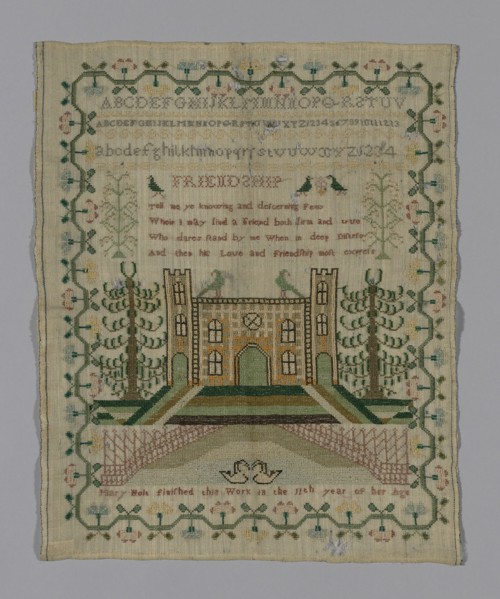 ABCDEFGHIJKLMNOPQRSTUV
ABCDEFGHIJKLMNOPQRSTUVWXYZ1234567891011213
abcdefghiklmnopqrſstuvwxyz1234
FRIENDSHIP
Tell me ye knowing and discerning Few
Where I may find a Friend both firm and true
Who dares ſtand by me When in deep Diſtreſs
And then his Love and Friendſhip moſt expreſs
Mary Holt Finiſhed this Work in the 11th year of her Age